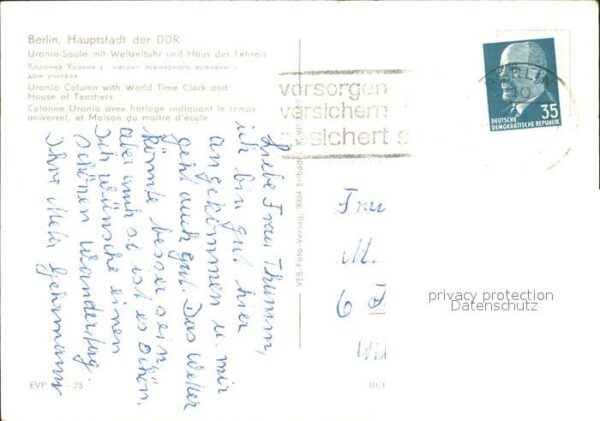 Berlin, Hauptstadt der DDR
Urania-Säule mit Weltzeituhr und Haus des Lehrers
Колонна Урания с часами всемирного времени -
дом учителя
Urania Column with World Time Clock and
House of Teachers
Colonne Urania avec horloge indiquant le temps
universel, et Maison du maître d'école
vorsorgen
versichern
gesichert s
BERLIN
35
DEUTSCHE
DEMOKRATISCHE REPUBLIK
Liebe Frau Thumm,
ich bin gut hier
angekommen u. mir
geht auch gut. Das Wetter
könnte besser sein
aber auch so ist es schön.
Ich wünsche einen
schönen Wandertag.
Ihre
VEB Foto-Verlag, 9934 Erlbach
Frau
M.
6
privacy protection
Datenschutz
EVP 25
III 1